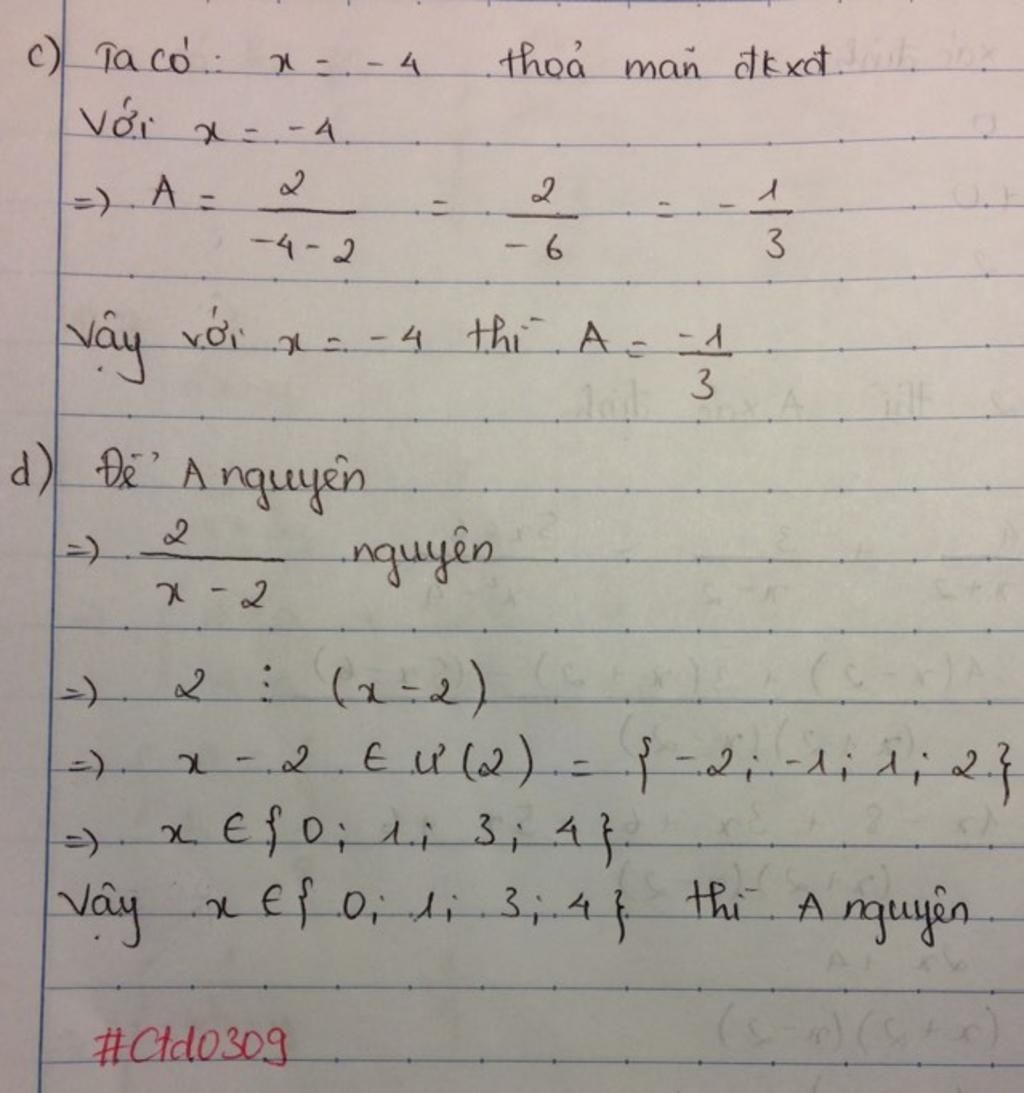 c) Ta có: x = -4 thoả mãn đkxđ.
Với x = -4
=> A = 2/(-4-2) = 2/-6 = -1/3
Vậy với x = -4 thì A = -1/3
d) Để A nguyên
=> 2/(x-2) nguyên
=> 2 ⋮ (x-2)
=> x - 2 ∈ Ư(2) = {-2; -1; 1; 2}
=> x ∈ {0; 1; 3; 4}
Vậy x ∈ {0; 1; 3; 4} thì A nguyên
#Ctd0309